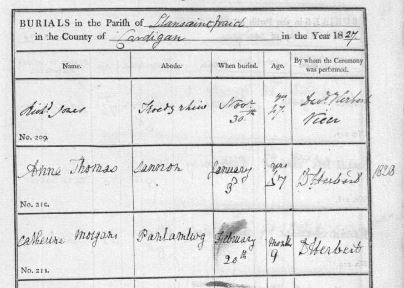 BURIALS in the Parish of Llansaintfraid
in the County of Cardigan in the Year 1827
Name. Abode. When buried. Age. By whom the Ceremony was performed.
Richd. Jones Novr. 30th yrs 47 Davd. Herbert Vicar
No. 209.
Anne Thomas Cannon January 3d yrs 57 D Herbert 1828
No. 210.
Catherine Morgans Pantamlwg February 20th Months 9 D Herbert
No. 211.